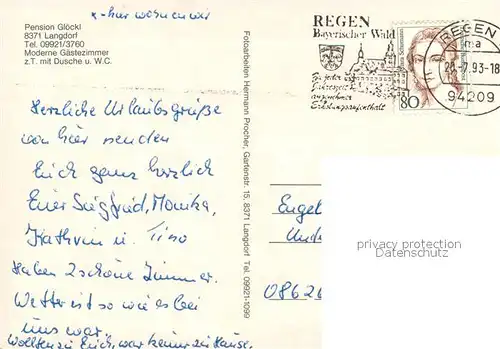 x-hier wohnen wir
Pension Glöckl
8371 Langdorf
Tel. 09921/3760
Moderne Gästezimmer
z.T. mit Dusche u. W.C.
Herzliche Urlaubsgrüße
von hier senden
Euch ganz herzlich
Euer Siegfried, Monika,
Kathrin u. Tino
Haben 2 schöne Zimmer.
Wetter ist so wie es bei
uns war.
Wollten zu Euch, war keiner zu Hause.
Fotoarbeiten Hermann Procher, Gartenstr. 15, 8371 Langdorf Tel. 09921-1090
REGEN
Bayerischer Wald
Zu jeder
Jahreszeit
angenehmer
Erholungsaufenthalt
80
REGEN
ma
-7.93-18
94209
Engel
08626
privacy protection
Datenschutz